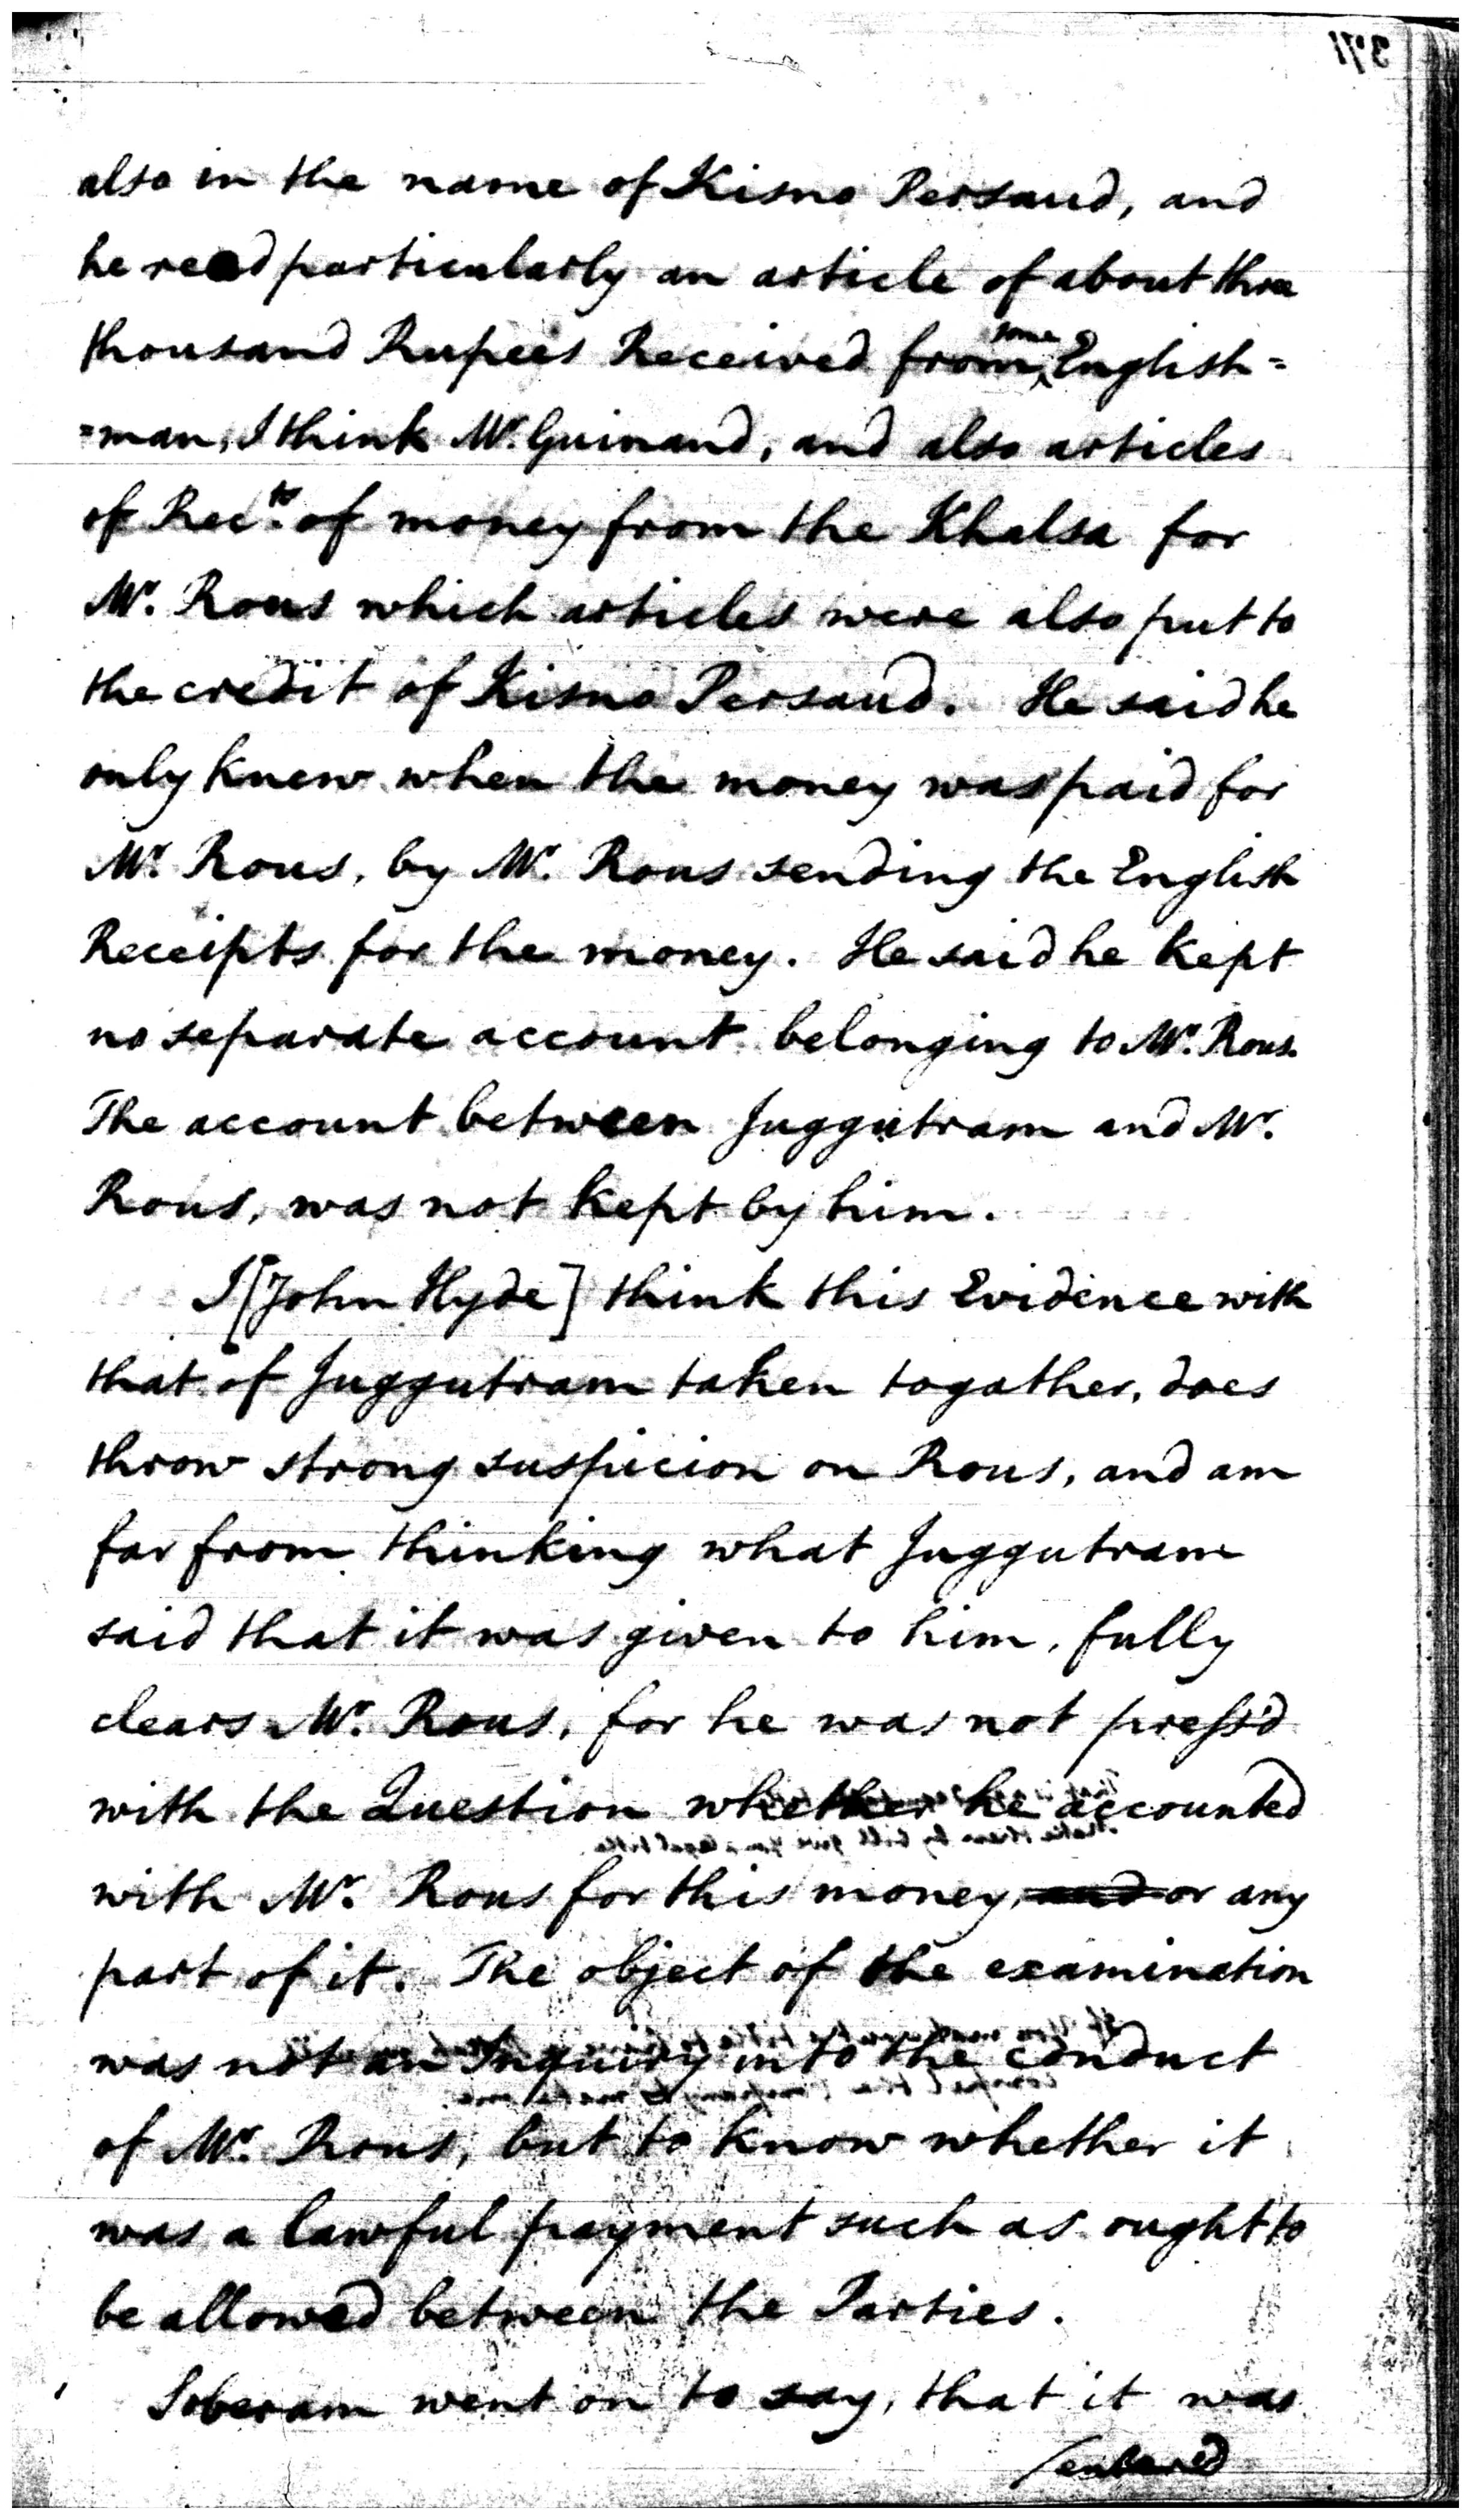 371
also in the name of Kisno Persaud, and
he read particularly an article of about three
thousand Rupees Received from some English=
=man, I think Mr. Guinand, and also articles
of Rects. of money from the Khalsa for
Mr. Rous which articles were also put to
the credit of Kisno Persaud. He said he
only knew when the money was paid for
Mr. Rous, by Mr. Rous sending the English
Receipts for the money. He said he kept
no separate account belonging to Mr. Rous.
The account between Juggutram and Mr.
Rous, was not kept by him.
I [John Hyde] think this Evidence with
that of Juggutram taken togather, does
throw strong suspicion on Rous, and am
far from thinking what Juggutram
said that it was given to him, fully
clears Mr. Rous, for he was not press'd
with the Question whether he accounted
with Mr. Rous for this money, and or any
part of it. The object of the examination
was not an Inquiry into the conduct
of Mr. Rous, but to know whether it
was a lawful payment such as ought to
be allowed between the Parties.
Soberam went on to say, that it was
/entered